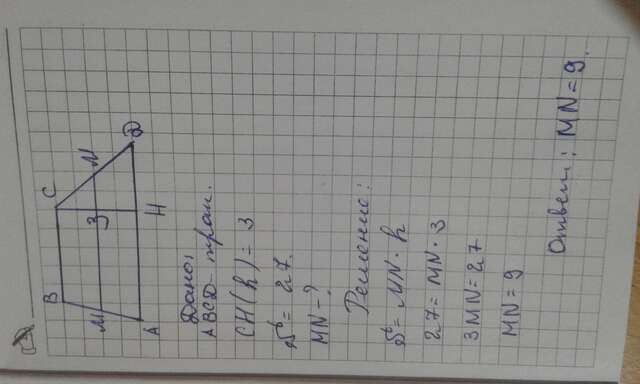 B C
M 3 N
A H D
Дано:
ABCD - трап.
CH(h) = 3
S = 27.
MN - ?
Решение:
S = MN · h
27 = MN · 3
3MN = 27
MN = 9
Ответ: MN = 9.